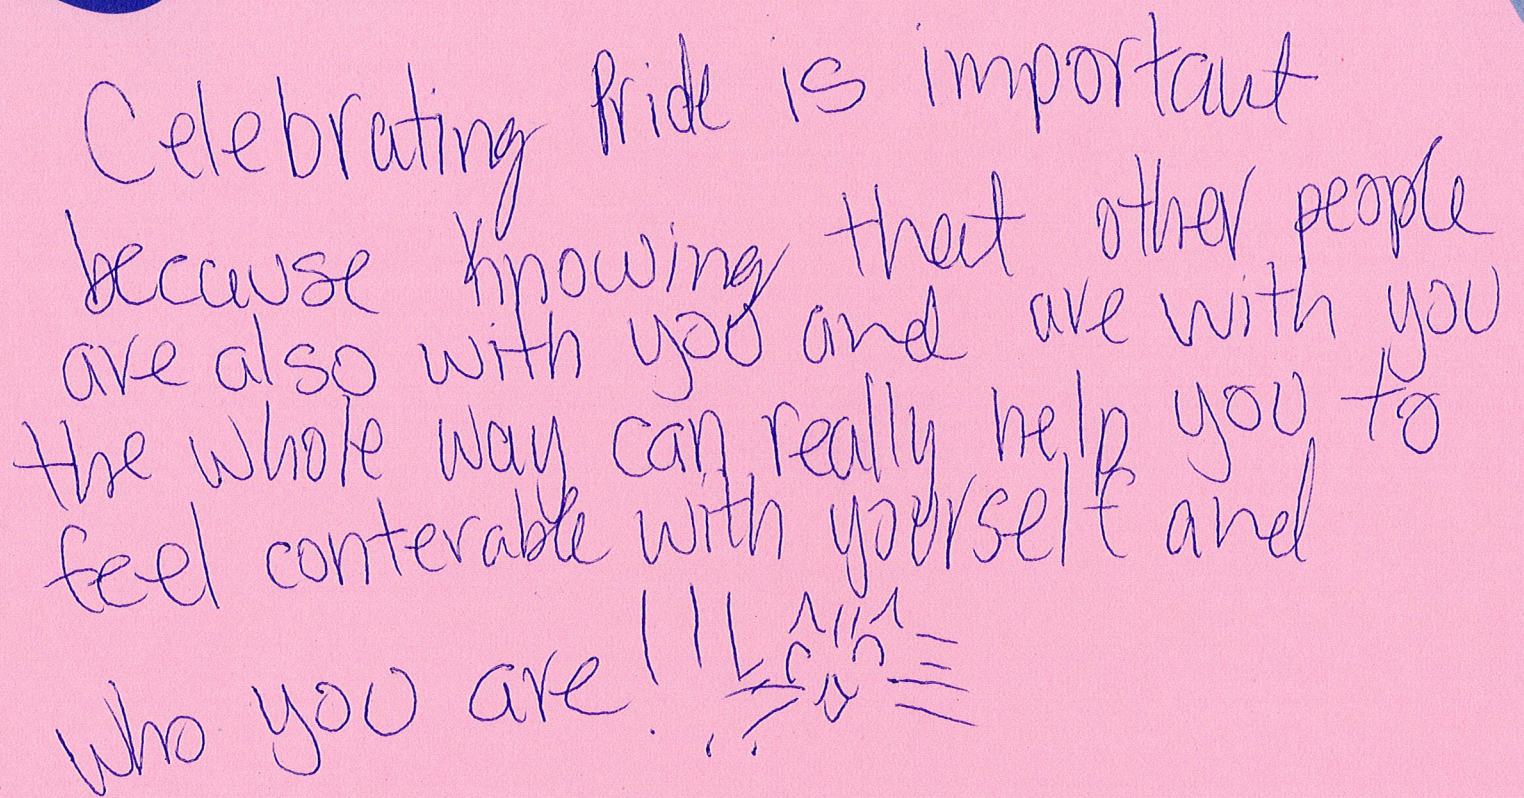 Celebrating Pride is important
because knowing that other people
are also with you and are with you
the whole way can really help you to
feel conterable with yourself and
who you are!!!